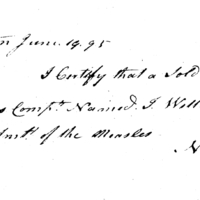 June 19. 95
I Certify that a Sold
Compy. Named. J. Will
Inst. of the Measles